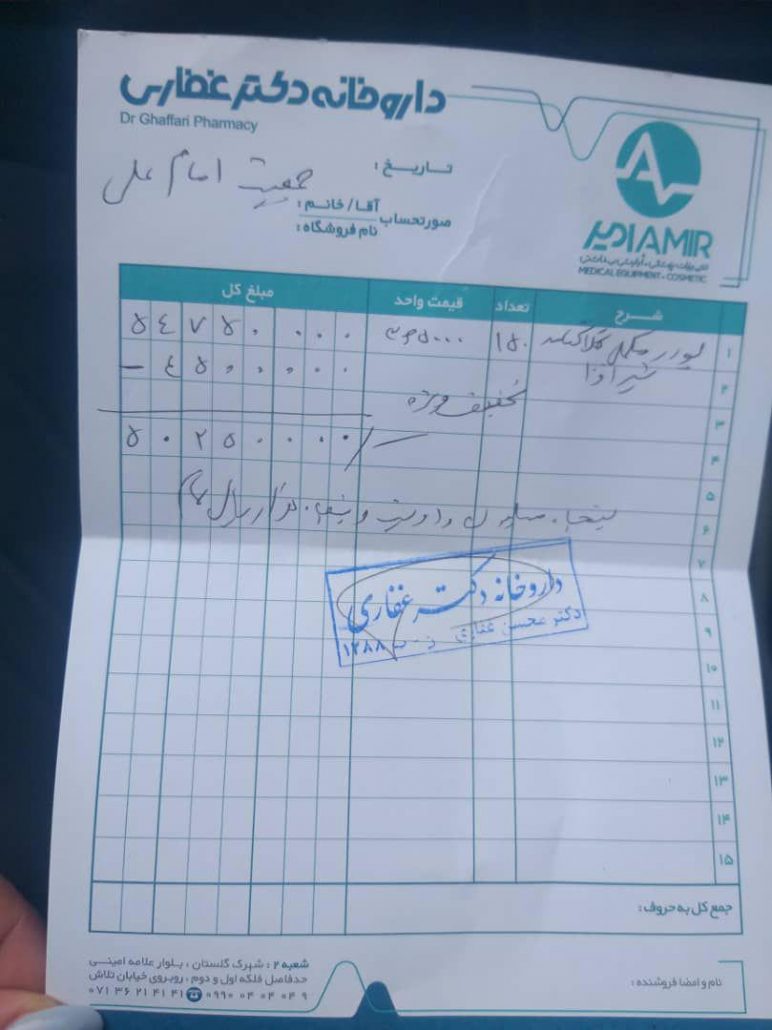 داروخانه دکتر غفاری
Dr Ghaffari Pharmacy
AMIR امیر
تجهیزات پزشکی - آرایشی بهداشتی
MEDICAL EQUIPMENT - COSMETIC
تاریخ:
جمعیت امام علی
صورتحساب آقا/خانم:
نام فروشگاه:
شرح تعداد قیمت واحد مبلغ کل
۱ پودر مکمل ۱۵۰ ۳۶۵۰۰۰۰ ۵۴۷۵۰۰۰۰۰
۲ شیرافزا ۴۵۰۰۰۰۰۰ −
۳ تخفیف ویژه
۴ ۵۰۲۵۰۰۰۰۰/−
۵
۶ پنجاه میلیون و دویست و پنجاه هزار
۷
۸
۹
۱۰
۱۱
۱۲
۱۳
۱۴
۱۵
داروخانه دکتر غفاری
دکتر محسن غفاری
جمع کل به حروف:
شعبه ۲: شهرک گلستان، بلوار علامه امینی
حدفاصل فلکه اول و دوم، روبروی خیابان تلاش
۰۷۱ ۳۶ ۲۱ ۴۱ ۴۱ ۰۹۹۰ ۰۴ ۰۴ ۰۴ ۹
نام و امضا فروشنده: